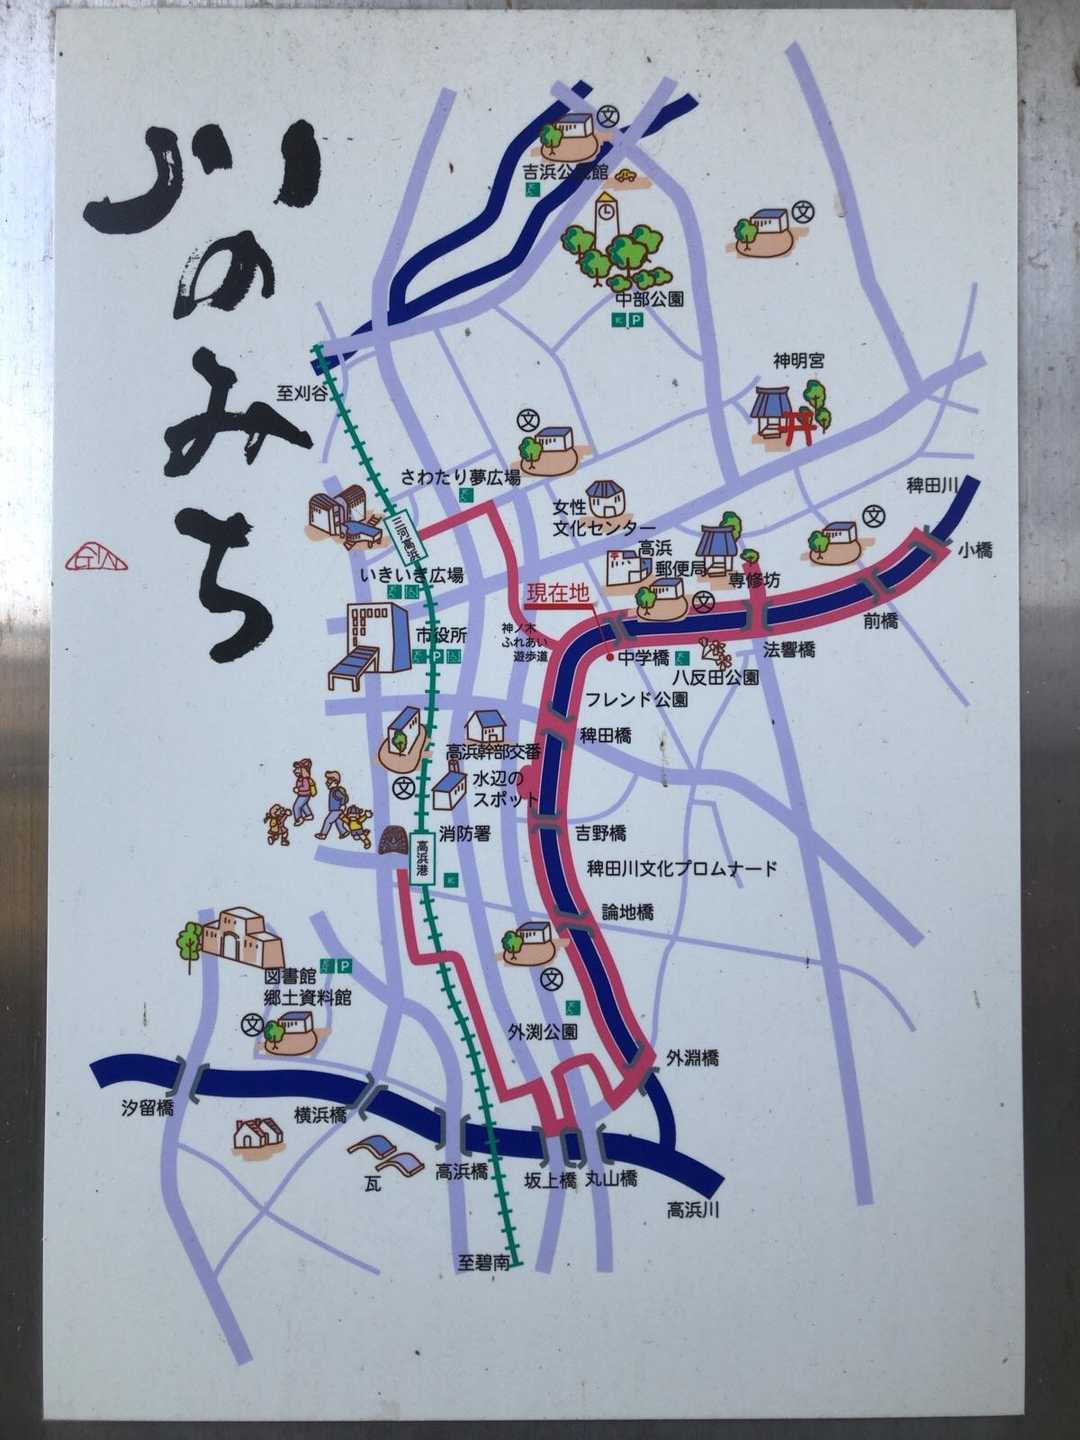 川のみち
吉浜公民館
文
文
中部公園
P
神明宮
至刈谷
文
さわたり夢広場
稗田川
女性
文化センター
文
三河高浜
高浜
郵便局
小橋
いきいき広場
専修坊
現在地
文
前橋
市役所
P
神ノ木
ふれあい
遊歩道
中学橋
法響橋
八反田公園
フレンド公園
稗田橋
高浜幹部交番
水辺の
スポット
文
消防署
吉野橋
高浜港
稗田川文化プロムナード
論地橋
図書館
P
郷土資料館
文
文
外渕公園
外淵橋
汐留橋
横浜橋
瓦
高浜橋
坂上橋
丸山橋
高浜川
至碧南